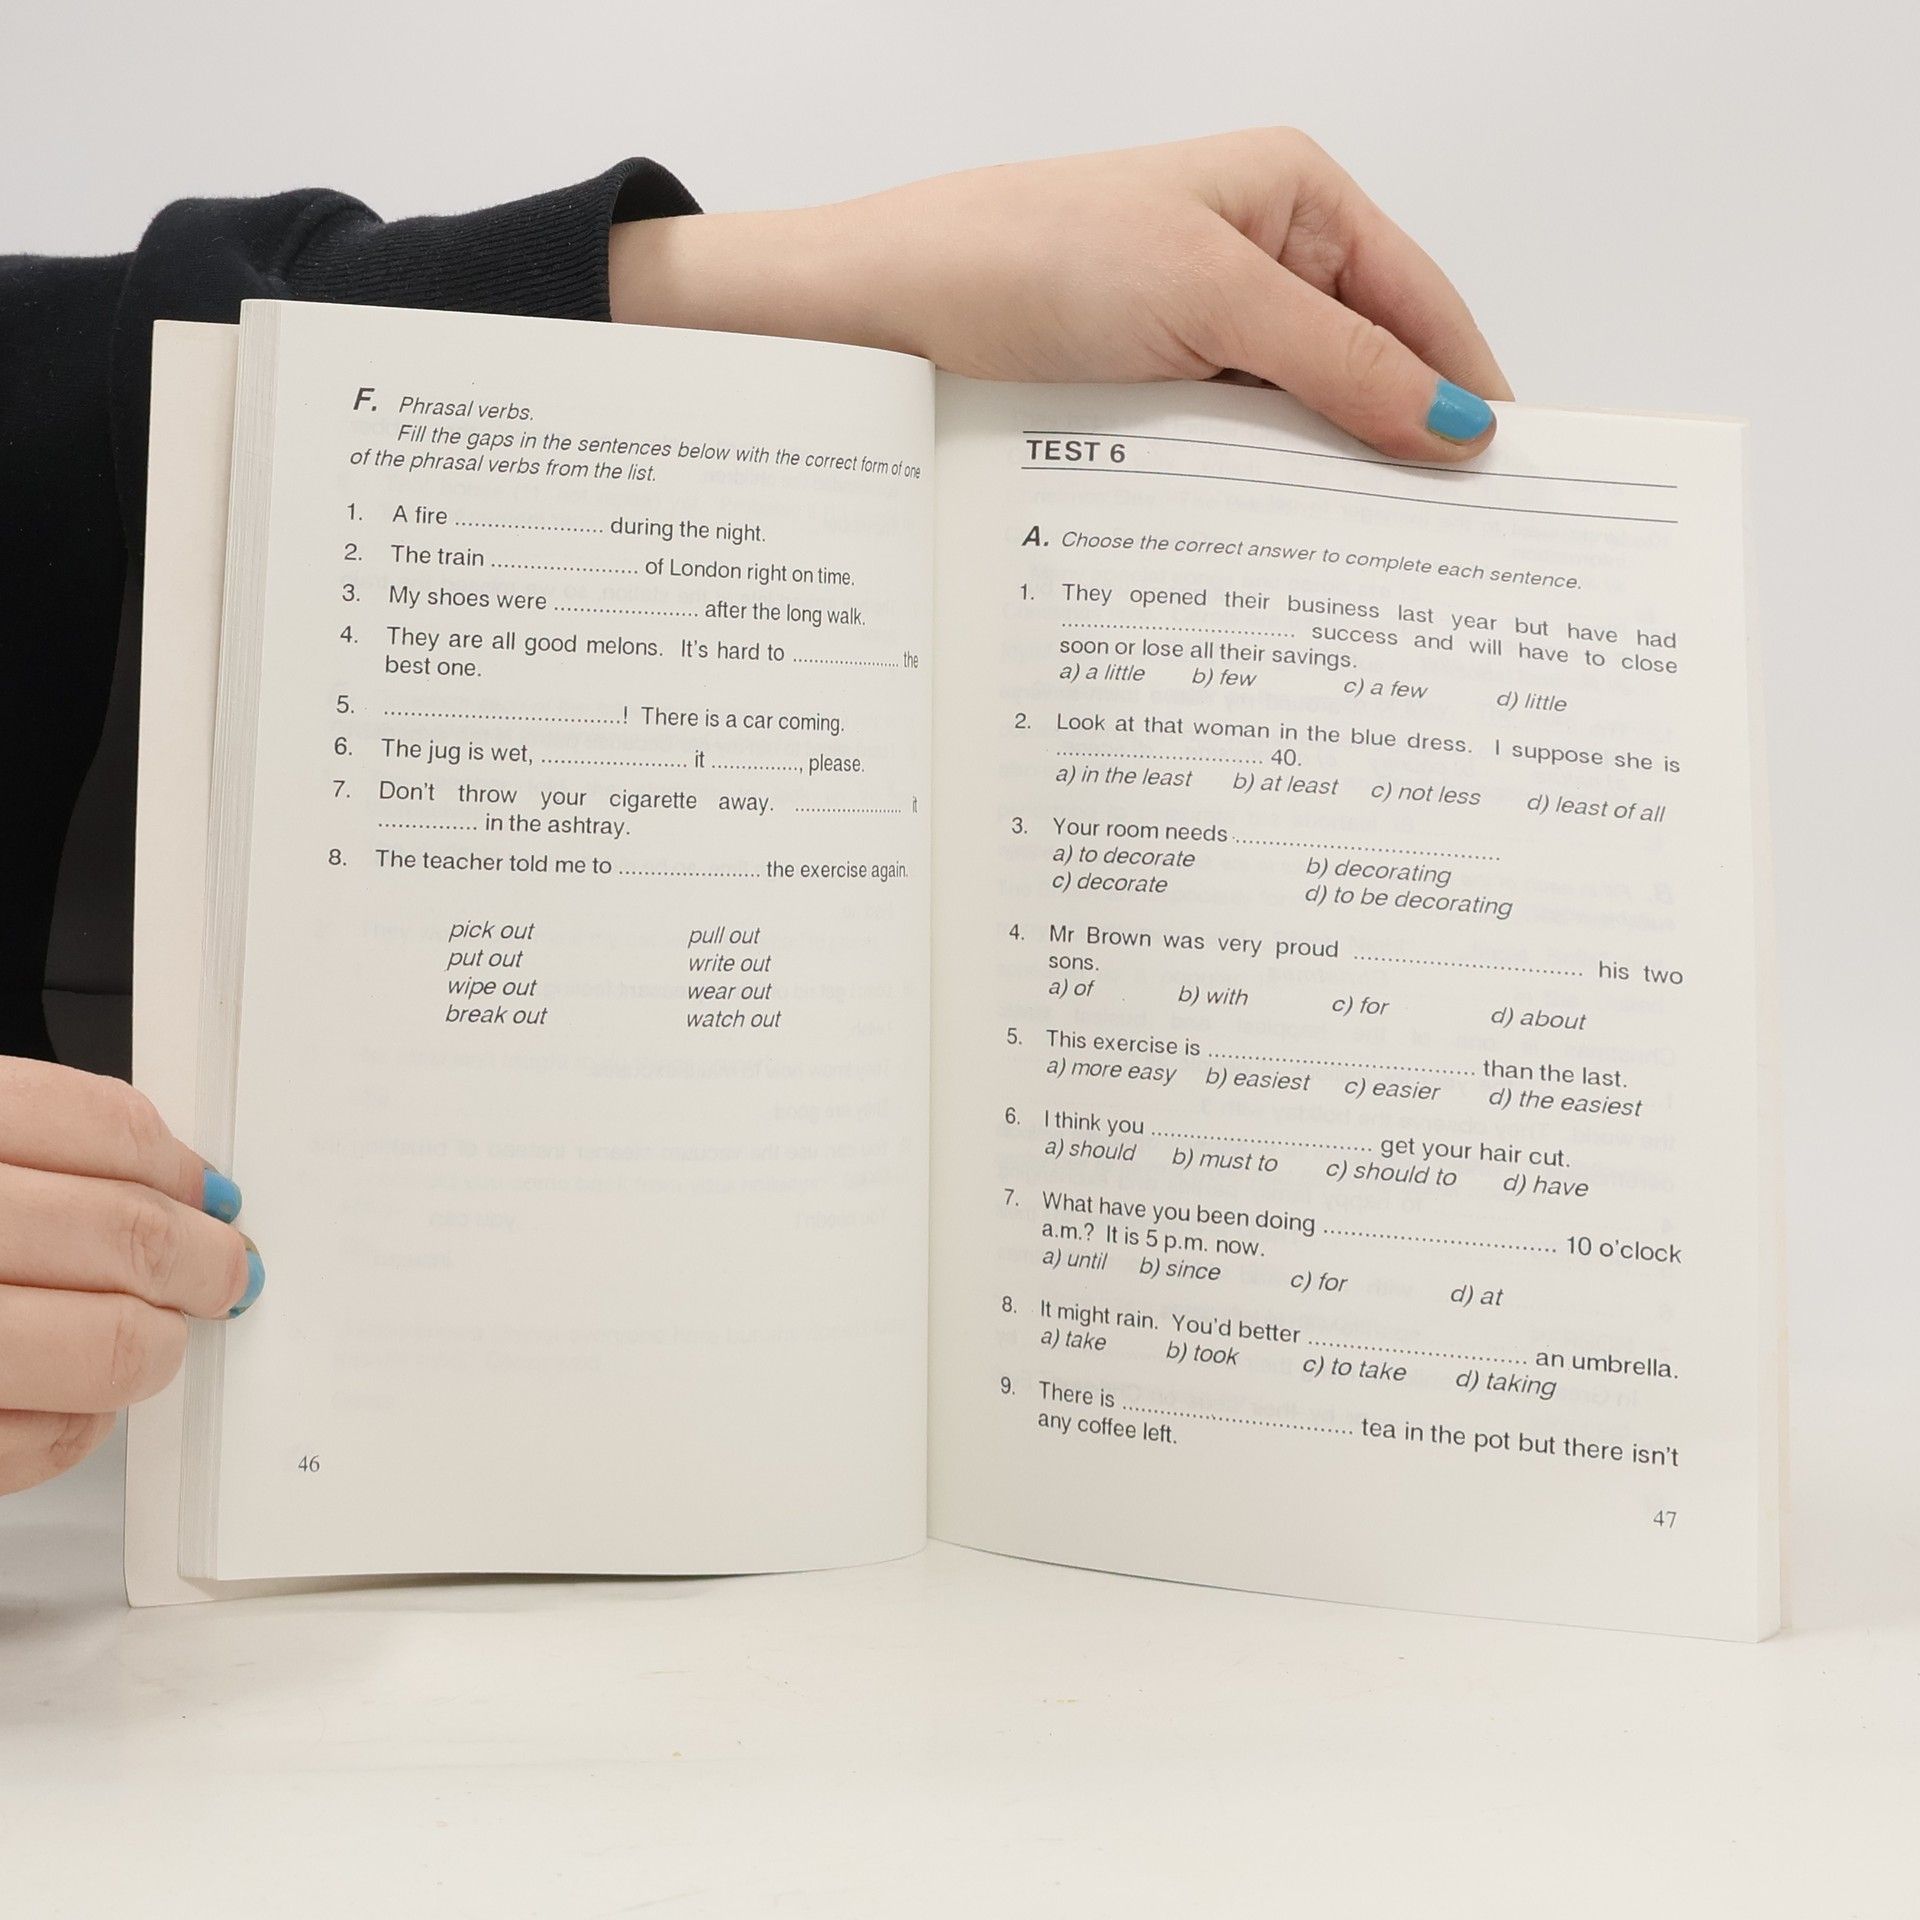 F. Phrasal verbs.
Fill the gaps in the sentences below with the correct form of one
of the phrasal verbs from the list.
1. A fire ........................ during the night.
2. The train ........................ of London right on time.
3. My shoes were ........................ after the long walk.
4. They are all good melons. It's hard to ........................ the
best one.
5. ......................................! There is a car coming.
6. The jug is wet, ........................ it .............., please.
7. Don't throw your cigarette away. ........................ it
................ in the ashtray.
8. The teacher told me to ........................ the exercise again.
pick out pull out
put out write out
wipe out wear out
break out watch out
46
TEST 6
A. Choose the correct answer to complete each sentence.
1. They opened their business last year but have had
...................................... success and will have to close
soon or lose all their savings.
a) a little b) few c) a few d) little
2. Look at that woman in the blue dress. I suppose she is
.................................. 40.
a) in the least b) at least c) not less d) least of all
3. Your room needs ............................................
a) to decorate b) decorating
c) decorate d) to be decorating
4. Mr Brown was very proud ...................................... his two
sons.
a) of b) with c) for d) about
5. This exercise is ............................................ than the last.
a) more easy b) easiest c) easier d) the easiest
6. I think you .................................... get your hair cut.
a) should b) must to c) should to d) have
7. What have you been doing ...................................... 10 o'clock
a.m.? It is 5 p.m. now.
a) until b) since c) for d) at
8. It might rain. You'd better .................................... an umbrella.
a) take b) took c) to take d) taking
9. There is ...................................... tea in the pot but there isn't
any coffee left.
47